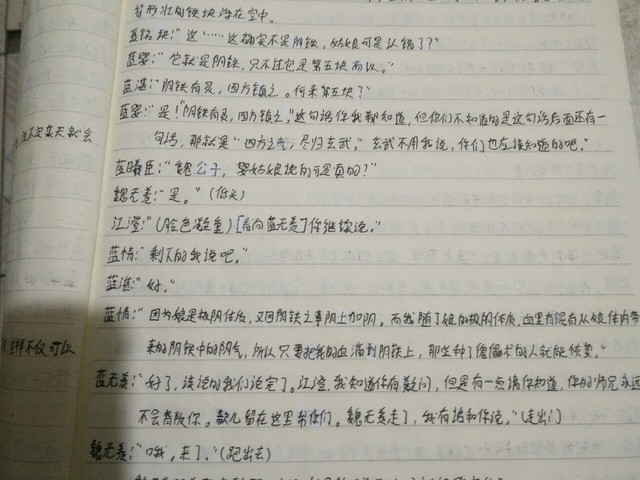 管形状的铁块浮在空中。
蓝铭轶："这……这确实不是阴铁，姑娘可是认错了？"
蓝婴："它就是阴铁，只不过它是第五块而以。"
蓝湛："阴铁有灵，四方镇之。何来第五块？"
蓝婴："是！'阴铁有灵，四方镇之。'这句话你我都知道，但你们不知道的是这句话后面还有一
句话，那就是"四方之，尽归玄武。"玄武不用我说，你们也应该知道的吧。"
蓝曦臣："魏公子，婴姑娘说的可是真的？"
魏无羡："是。"（低头）
江澄："（脸色凝重）[看向蓝无羡]你继续说。"
蓝情："剩下的我说吧。"
蓝湛："好。"
蓝情："因为娘是极阴体质，又因阴铁之事阴上加阴。而我随了娘的极的体质，血里有能自从娘体内带
来的阴铁中的阴气，所以只要把我的血滴到阴铁上，那些种了傀儡术的人就能恢复。"
蓝无羡："好了，该说的我们说完了。江澄，我知道你有疑问，但是有一点请你知道，你的师兄永远
不会背叛你。留在这里帮你们。魏无羡走了，我有话和你说。"（走出门
魏无羡："哦，来了。"（跑出去）
某天就会
这样不仅可以